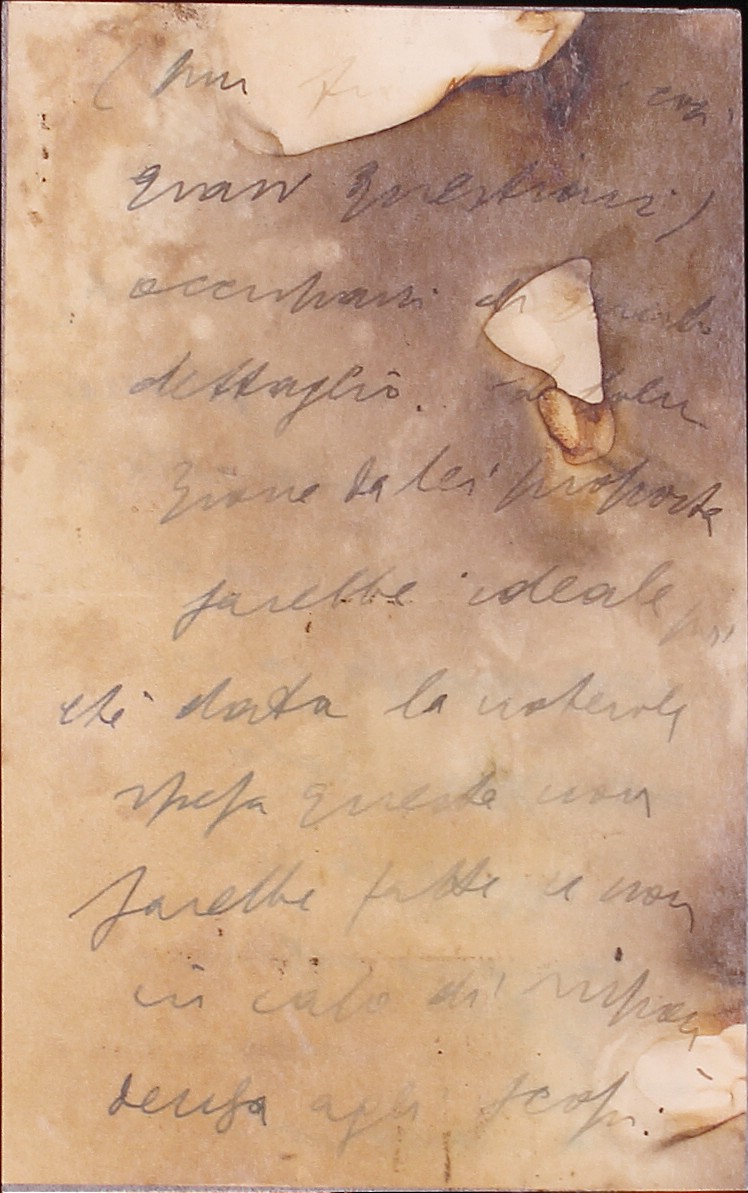 ( pur fra così
gravi questioni)
occuparsi di questo
dettaglio. La solu
zione da lei proposta
sarebbe ideale poi
chè data la notevole
spesa queste non
sarebbe fatte se non
in caso di rispon
denza agli scopi.